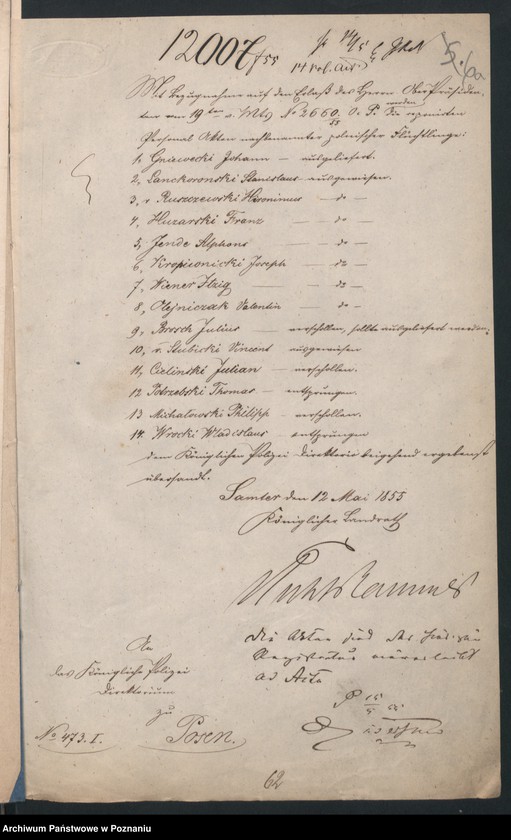 12007/55
14 Pol. Act.
Mit Bezugnahme auf den Erlaß des Herrn Ober Präsiden-
ten vom 19ten v. Mts No 2660/55 O. P. werden die
Personal Akten nachbenannter polnischer Flüchtlinge:
1, Gniewecki Johann — ausgeliefert.
2, Lanckoronski Stanislaus — ausgewiesen.
3, v Ruszczewski Hieronimus — do —
4, Huzarski Franz — do —
5, Jende Alphons — do —
6, Kropiwnicki Joseph — do —
7, Wiener Itzig — do —
8, Olejniczak Valentin — do —
9, Brosch Julius — verschollen, sollte ausgeliefert werden.
10, v. Slubicki Vincent ausgewiesen
11, Cielinski Julian — verschollen.
12 Potrzebski Thomas — entsprungen.
13 Michalowski Philipp — verschollen.
14. Wrocki Wladislaus entsprungen
dem Königlichen Polizei Direktorio beigehend ergebenst
übersandt.
Samter den 12 Mai 1855
Königlicher Landrath
An
das Königliche Polizei
Direktorium
zu
Posen.
No 473. I.
Die Akten sind der
Registratur einverleibt
ad Acta
62
Archiwum Państwowe w Poznaniu